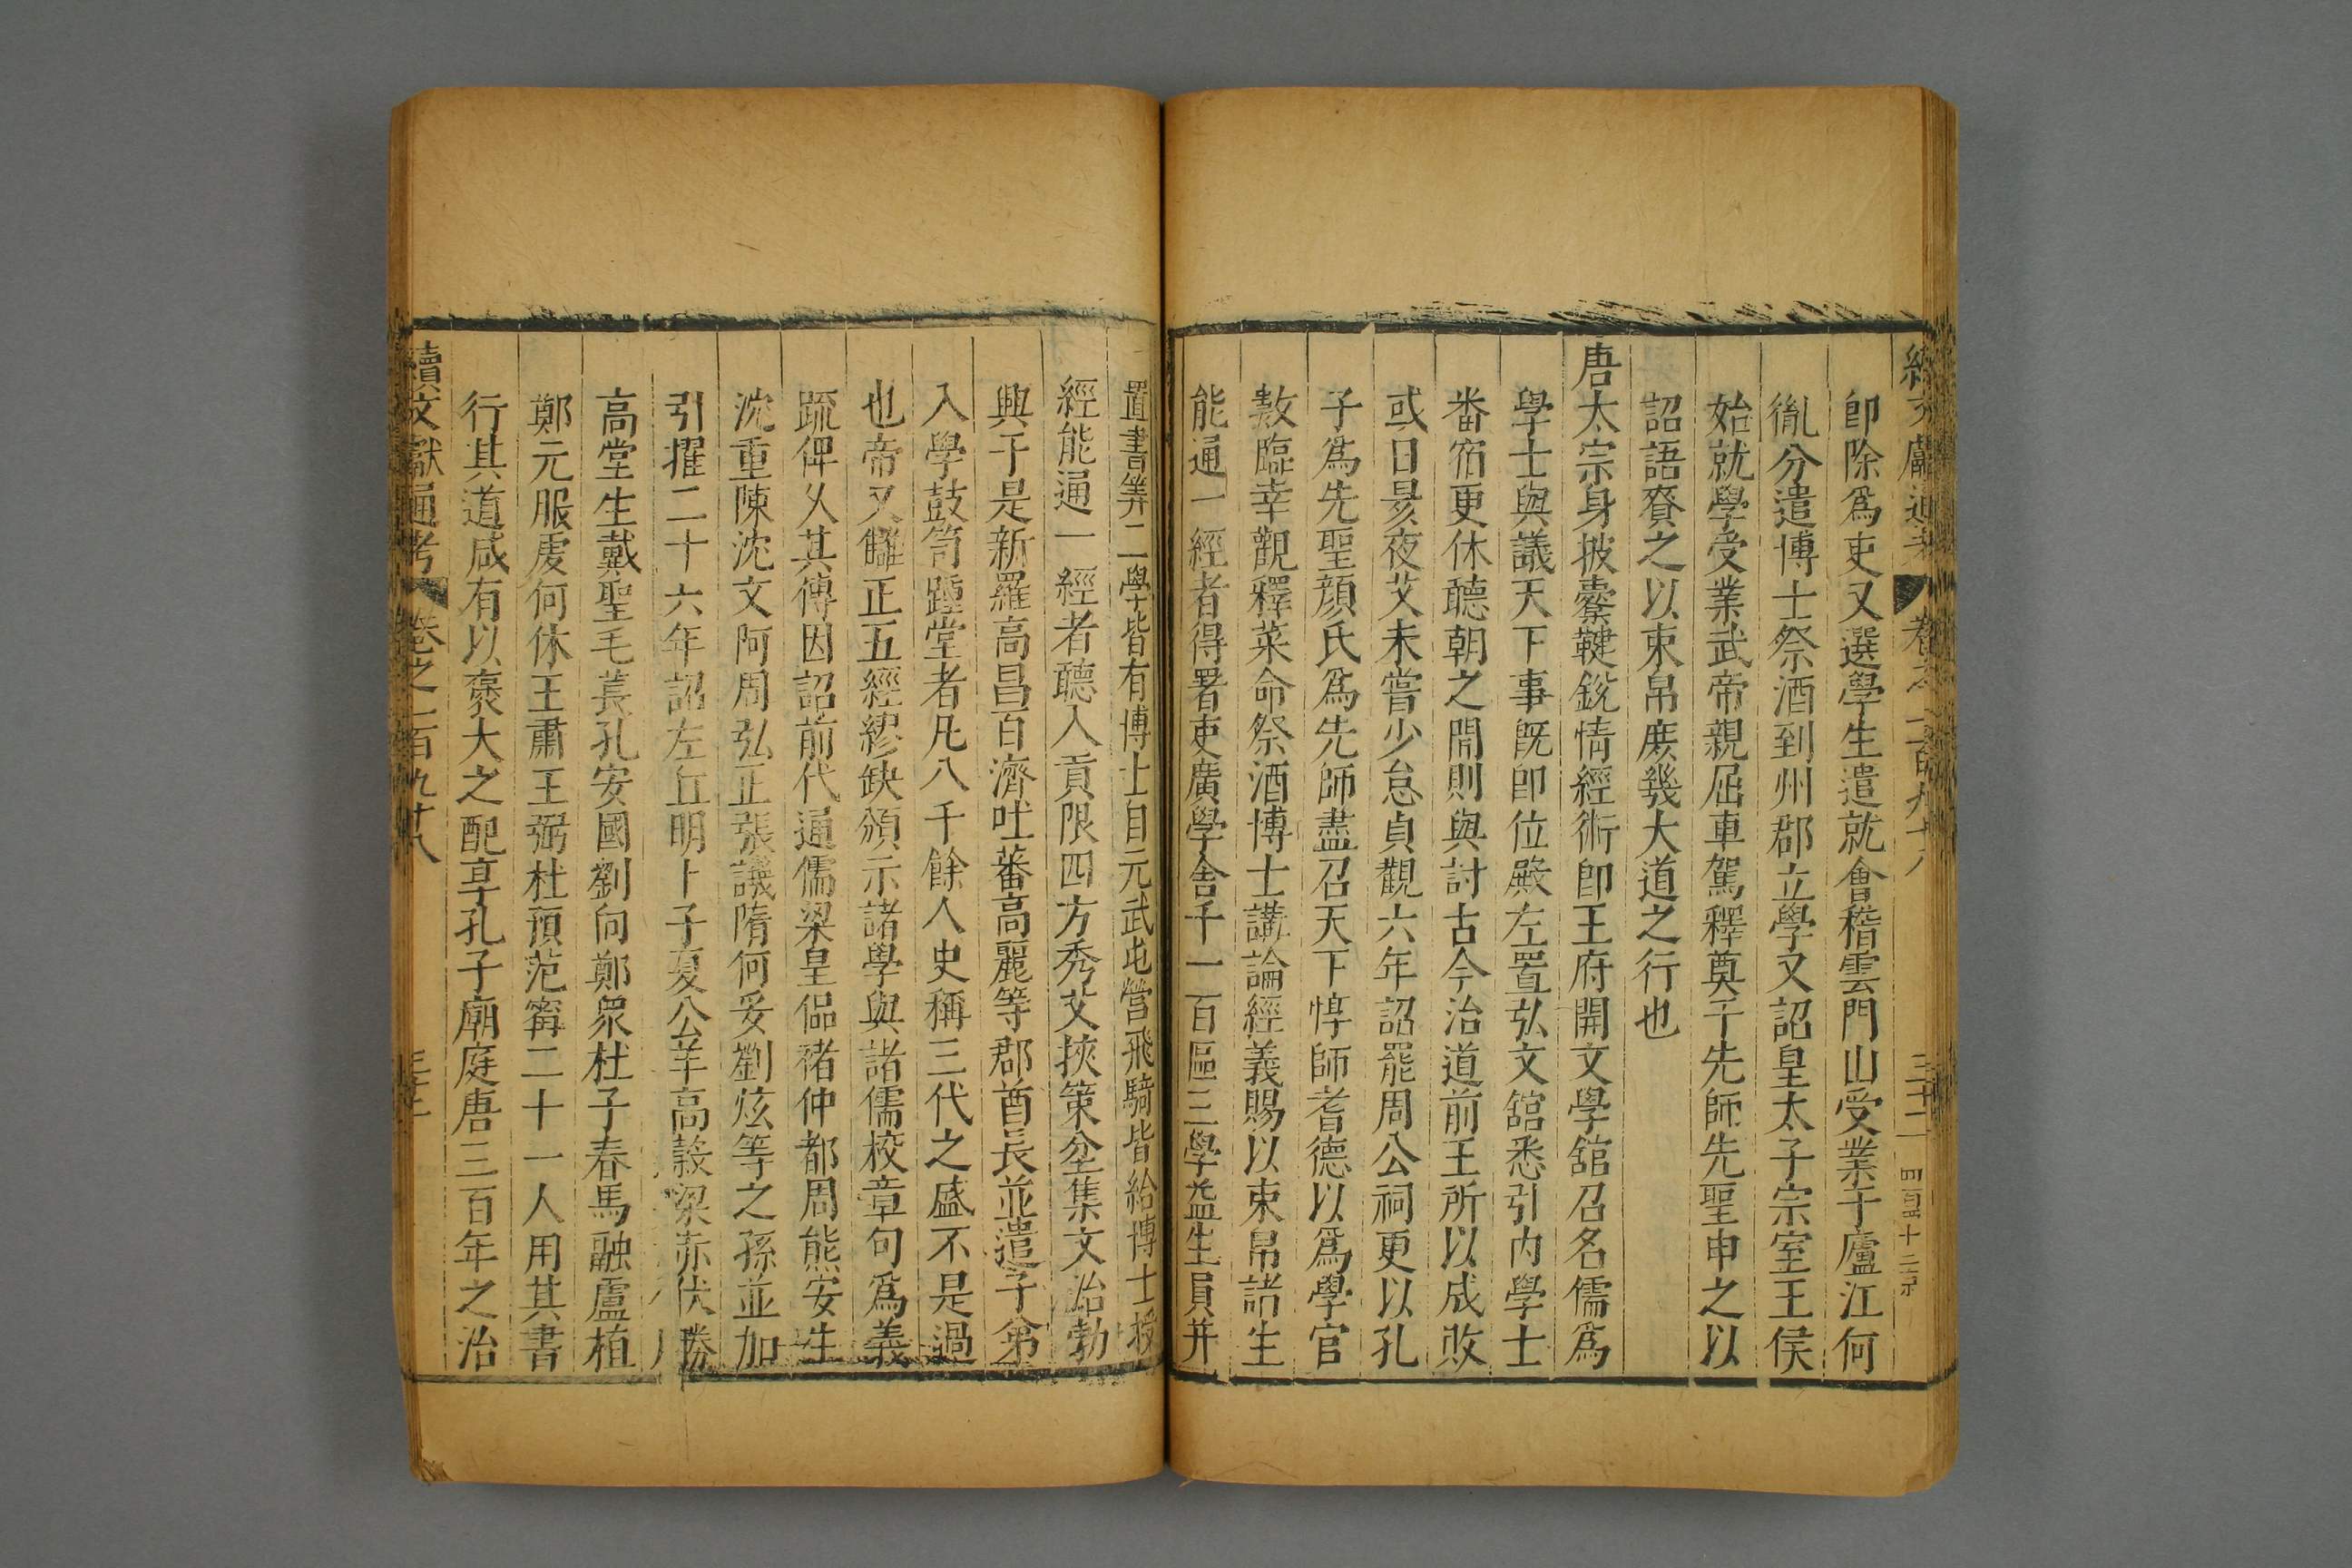 續文獻通考 卷之一百九十八 三十一
卽除爲吏又選學生遣就會稽雲門山受業于廬江何
胤分遣博士祭酒到州郡立學又詔皇太子宗室王侯
始就學受業武帝親屈車駕釋奠于先師先聖申之以
詔語賚之以束帛庻㡬大道之行也
唐太宗身披櫜鞬銳情經術卽王府開文學舘召名儒爲
學士與議天下事旣卽位殿左置弘文舘悉引内學士
番宿更休聽朝之間則與討古今治道前王所以成敗
或日昃夜艾未嘗少怠貞觀六年詔罷周公祠更以孔
子爲先聖顔氏爲先師盡召天下惇師耆德以爲學官
數臨幸觀釋菜命祭酒博士講論經義賜以束帛諸生
能通一經者得署吏廣學舍千一百區三學益生員并
置書筭二學皆有博士自元武屯營飛騎皆給博士授
經能通一經者聽入貢限四方秀艾挾策坌集文治勃
興于是新羅高昌百濟吐蕃高麗等郡酋長並遣子弟
入學鼓笥踵堂者凡八千餘人史稱三代之盛不是過
也帝又讎正五經繆缺頒示諸學與諸儒校章句爲義
疏俾乂其傳因詔前代通儒梁皇偘禇仲都周熊安生
沈重陳沈文阿周弘正張譏隋何妥劉炫等之孫並加
引擢二十六年詔左丘明卜子夏公羊高榖梁赤伏勝
高堂生戴聖毛萇孔安國劉向鄭眾杜子春馬融盧植
鄭元服虔何休王肅王弼杜預范甯二十一人用其書
行其道咸有以褒大之配享孔子廟庭唐三百年之治
續文獻通考 卷之一百九十八